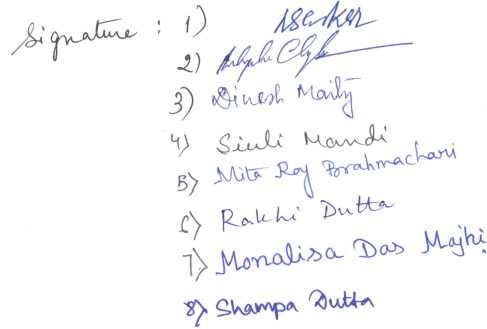 Signature : 1) 
2)
3) Dinesh Maity
4) Siuli Mandi
5) Mita Roy Brahmachari
6) Rakhi Dutta
7) Monalisa Das Majhi
8) Shampa Dutta